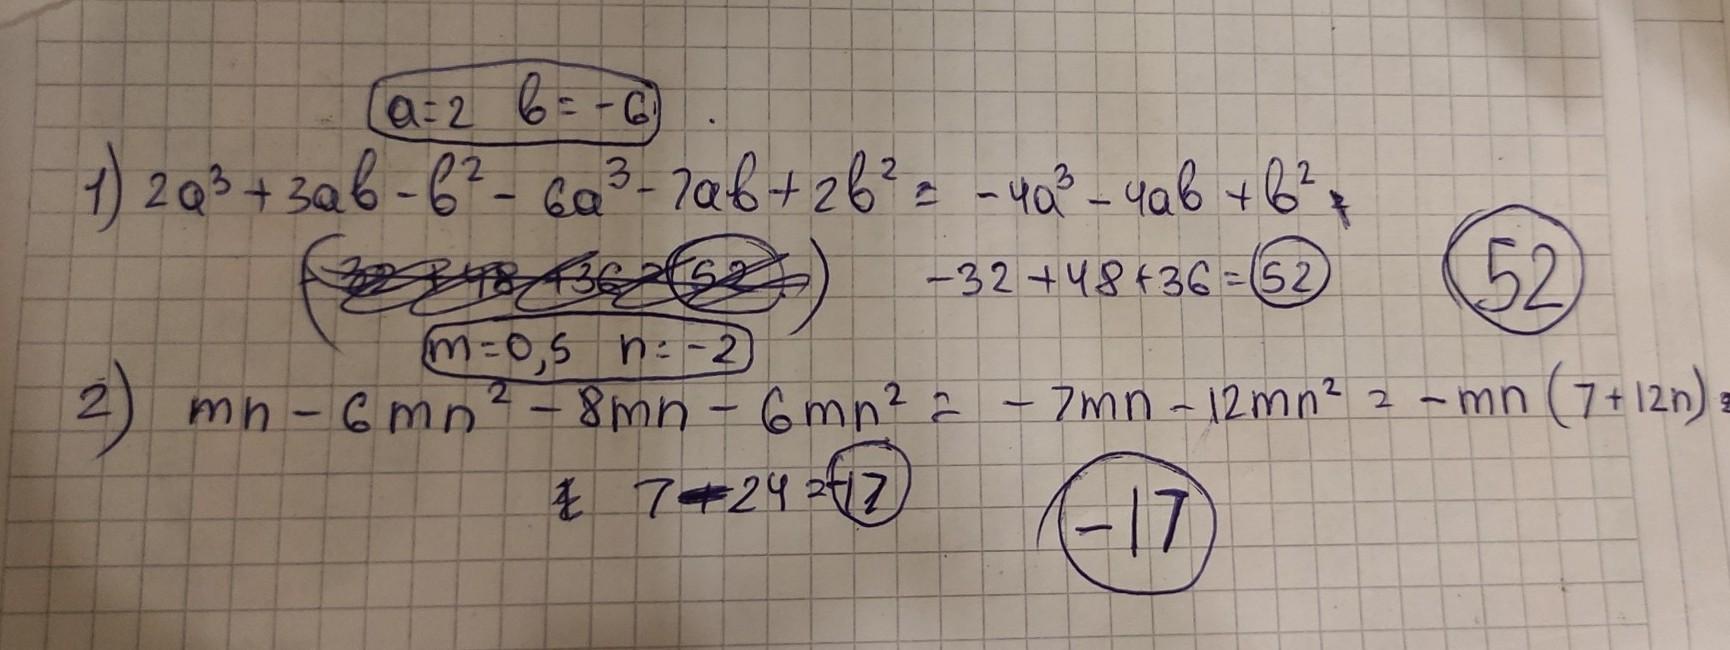 a=2 b=-6
1) 2a³+3ab-b²-6a³-7ab+2b²= -4a³-4ab+b²
-32+48+36=52 52
m=0,5 n=-2
2) mn-6mn²-8mn-6mn²= -7mn-12mn²= -mn(7+12n)=
7-24=-17 -17